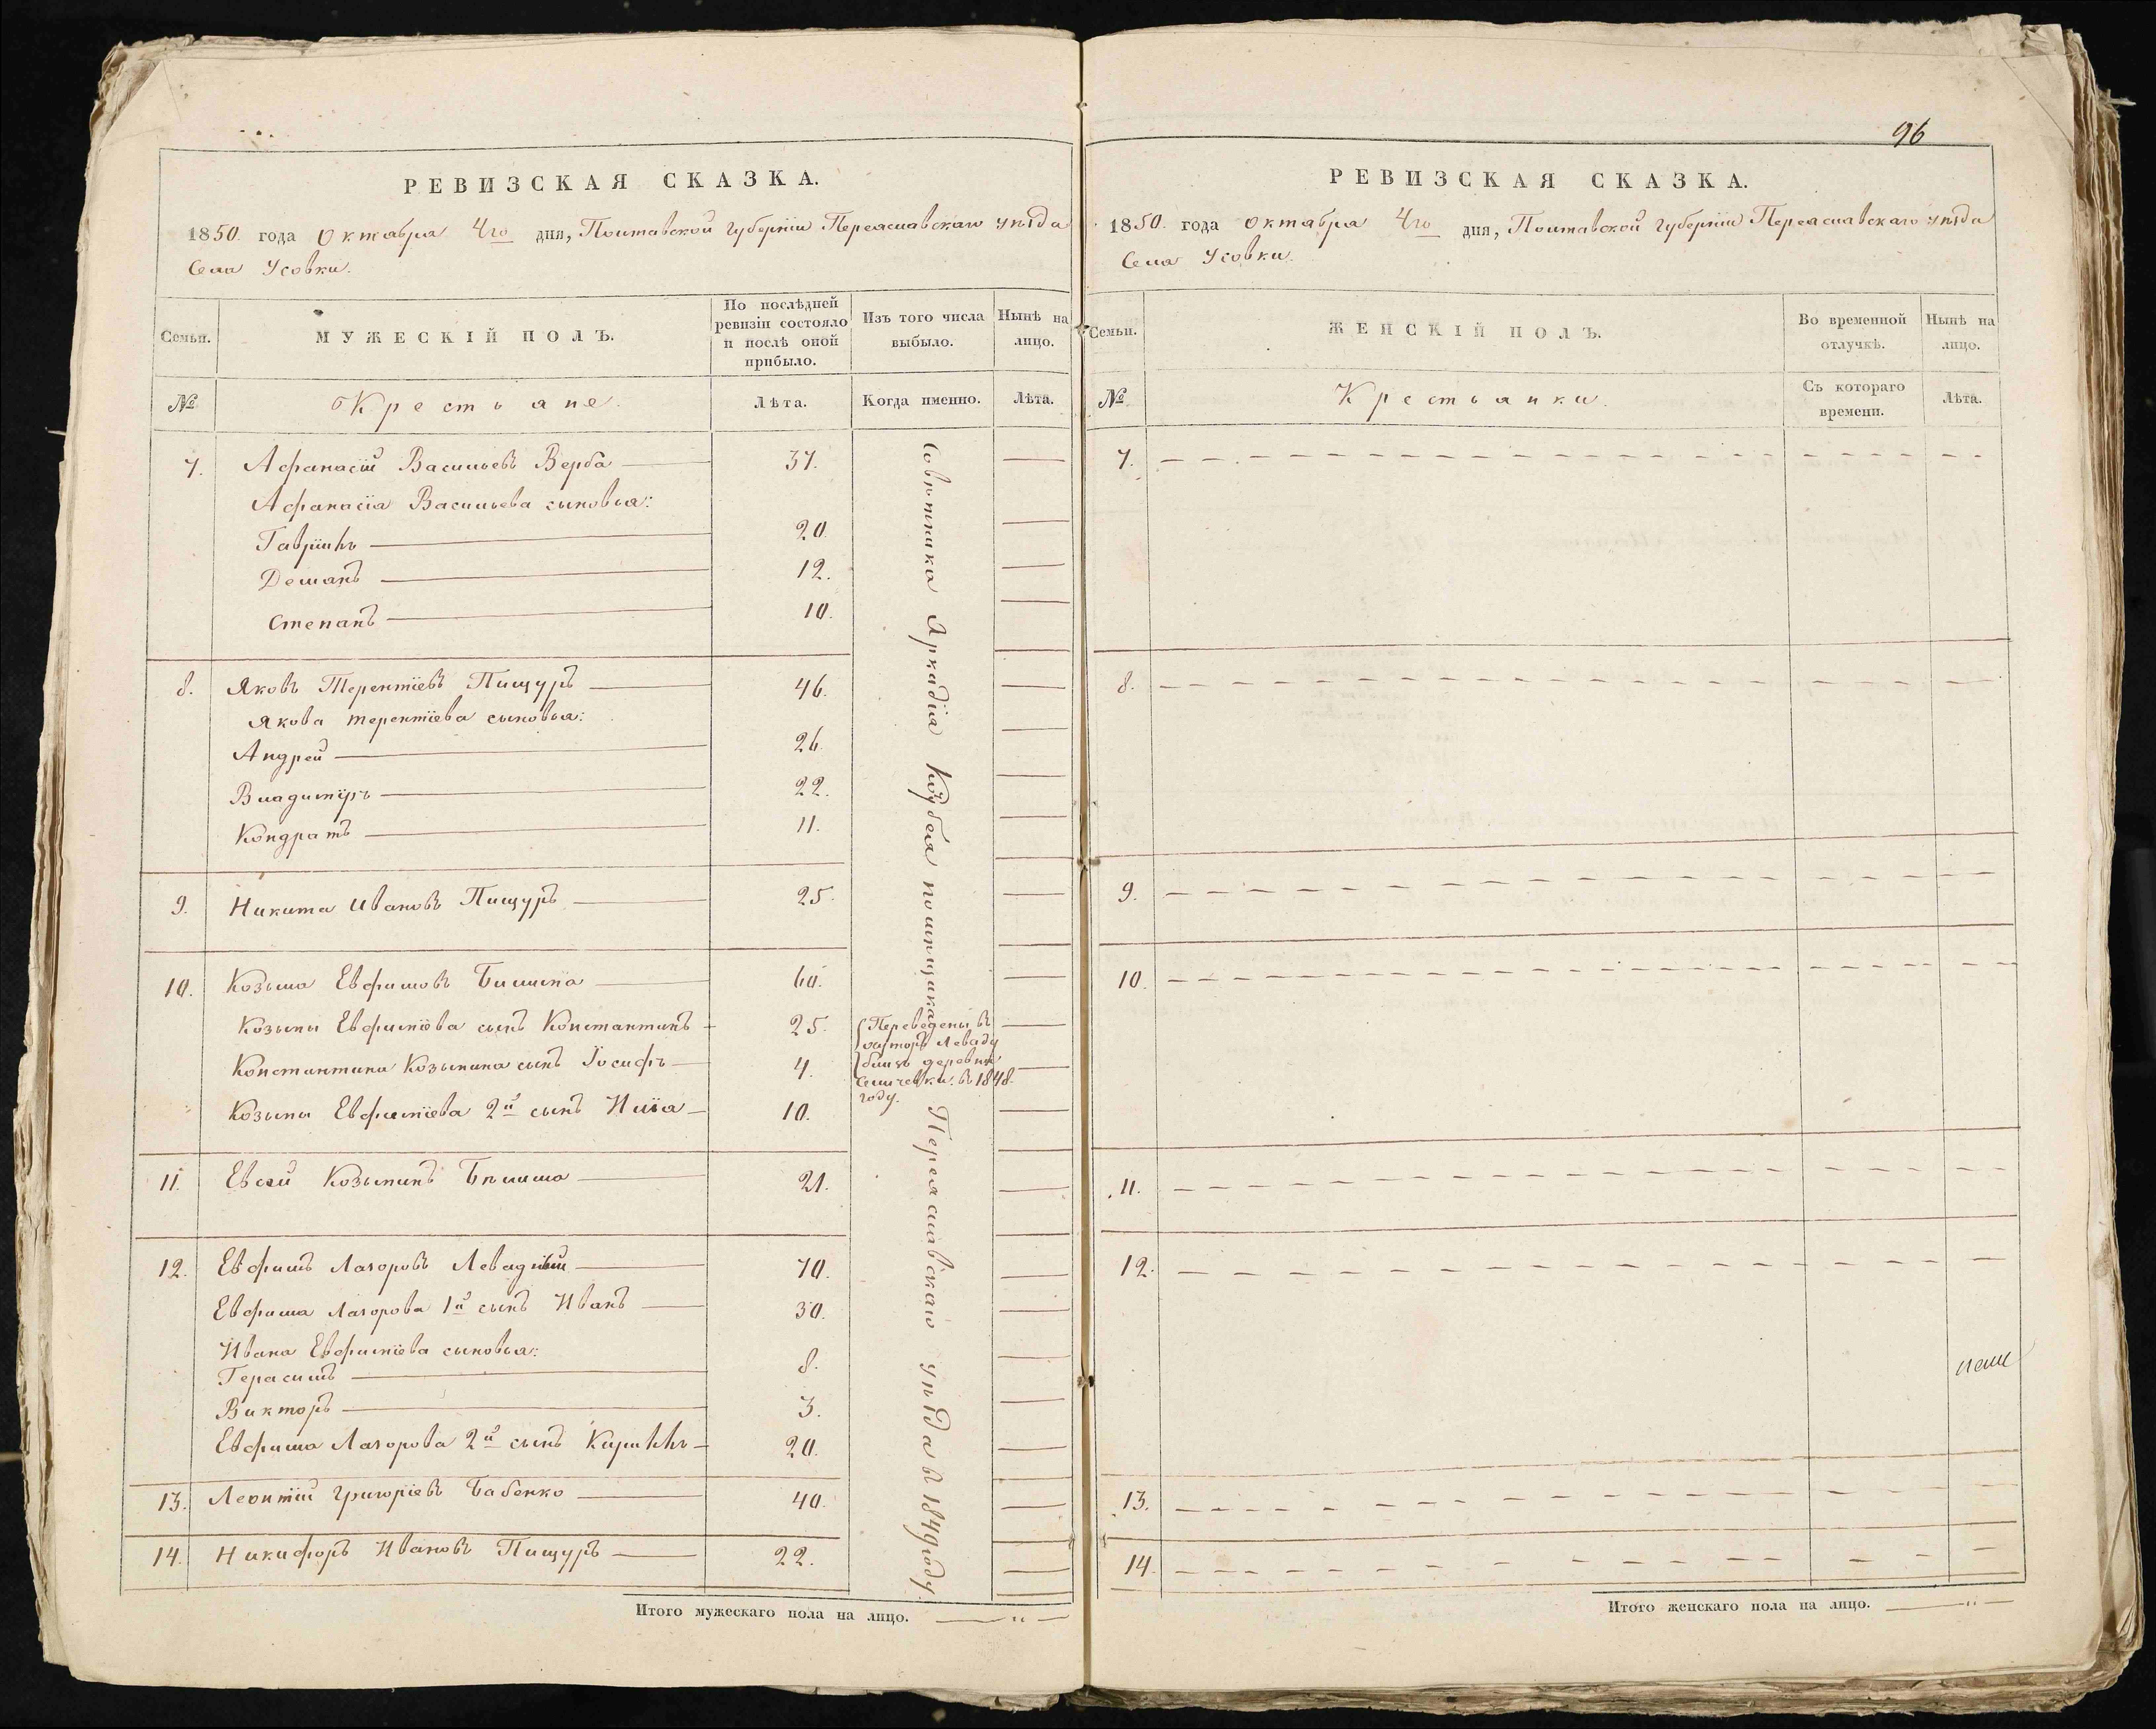 РЕВИЗСКАЯ СКАЗКА.
1850. года Октября 4го дня, Полтавской Губерніи Переяславскаго уѣзда
Села Усовки.
Семьи.
МУЖЕСКІЙ ПОЛЪ.
По послѣдней ревизіи состояло и послѣ оной прибыло.
Изъ того числа выбыло.
Нынѣ на лицо.
№
Крестьяне.
Лѣта.
Когда именно.
Лѣта.
7. Афанасій Васильевъ Верба 37.
Афанасія Васильева сыновья:
Гавріилъ 20.
Демьянъ 12.
Степанъ 10.
8. Яковъ Терентіевъ Пищуръ 46.
Якова Терентіева сыновья:
Андрей 26.
Владиміръ 22.
Кондратъ 11.
9. Никита Ивановъ Пищуръ 25.
10. Козьма Евфимовъ 60.
Козьмы Евфиміева сынъ Константинъ 25.
Константина Козьмина сынъ Іосифъ 4.
Козьмы Евфиміева 2й сынъ Илія 10.
11. Евсей Козьминъ 21.
12. Евфимъ Лазоровъ 70.
Евфима Лазорова 1й сынъ Иванъ 30.
Ивана Евфиміева сыновья:
Герасимъ 8.
Викторъ 3.
Евфима Лазорова 2й сынъ Кириллъ 20.
13. Леонтій Григоріевъ Бабенко 40.
14. Никифоръ Ивановъ Пищуръ 22.
Совѣтника Аркадія Кочубея помѣщика Переяславскаго уѣзда въ 1849 году.
Переведены въ
хуторъ Леваду
близъ деревни
въ 1848.
году.
Итого мужескаго пола на лицо. — " —
96
РЕВИЗСКАЯ СКАЗКА.
1850. года Октября 4го дня, Полтавской Губерніи Переяславскаго уѣзда
Села Усовки.
Семьи.
ЖЕНСКІЙ ПОЛЪ.
Во временной отлучкѣ.
Нынѣ на лицо.
№
Крестьянки.
Съ котораго времени.
Лѣта.
7.
8.
9.
10.
11.
12.
13.
14.
Итого женскаго пола на лицо. — " —